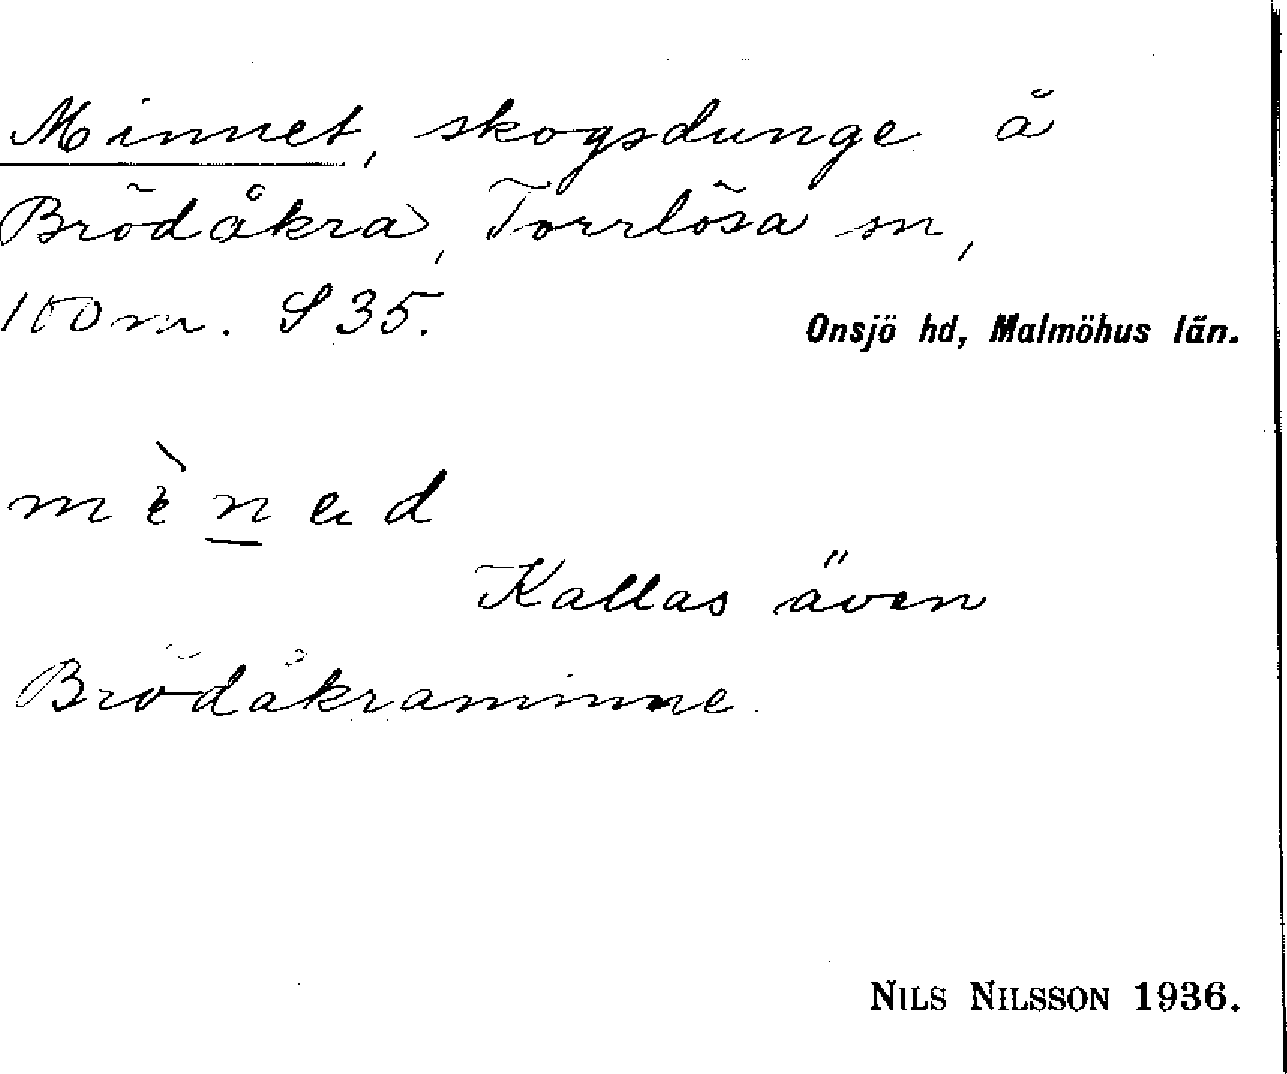 Minnet, skogsdunge å
Brödåkra, Torrlösa sn,
100 m. S 35.
Onsjö hd, Malmöhus län.
mènad
Kallas även
Brödåkraminne.
NILS NILSSON 1936.